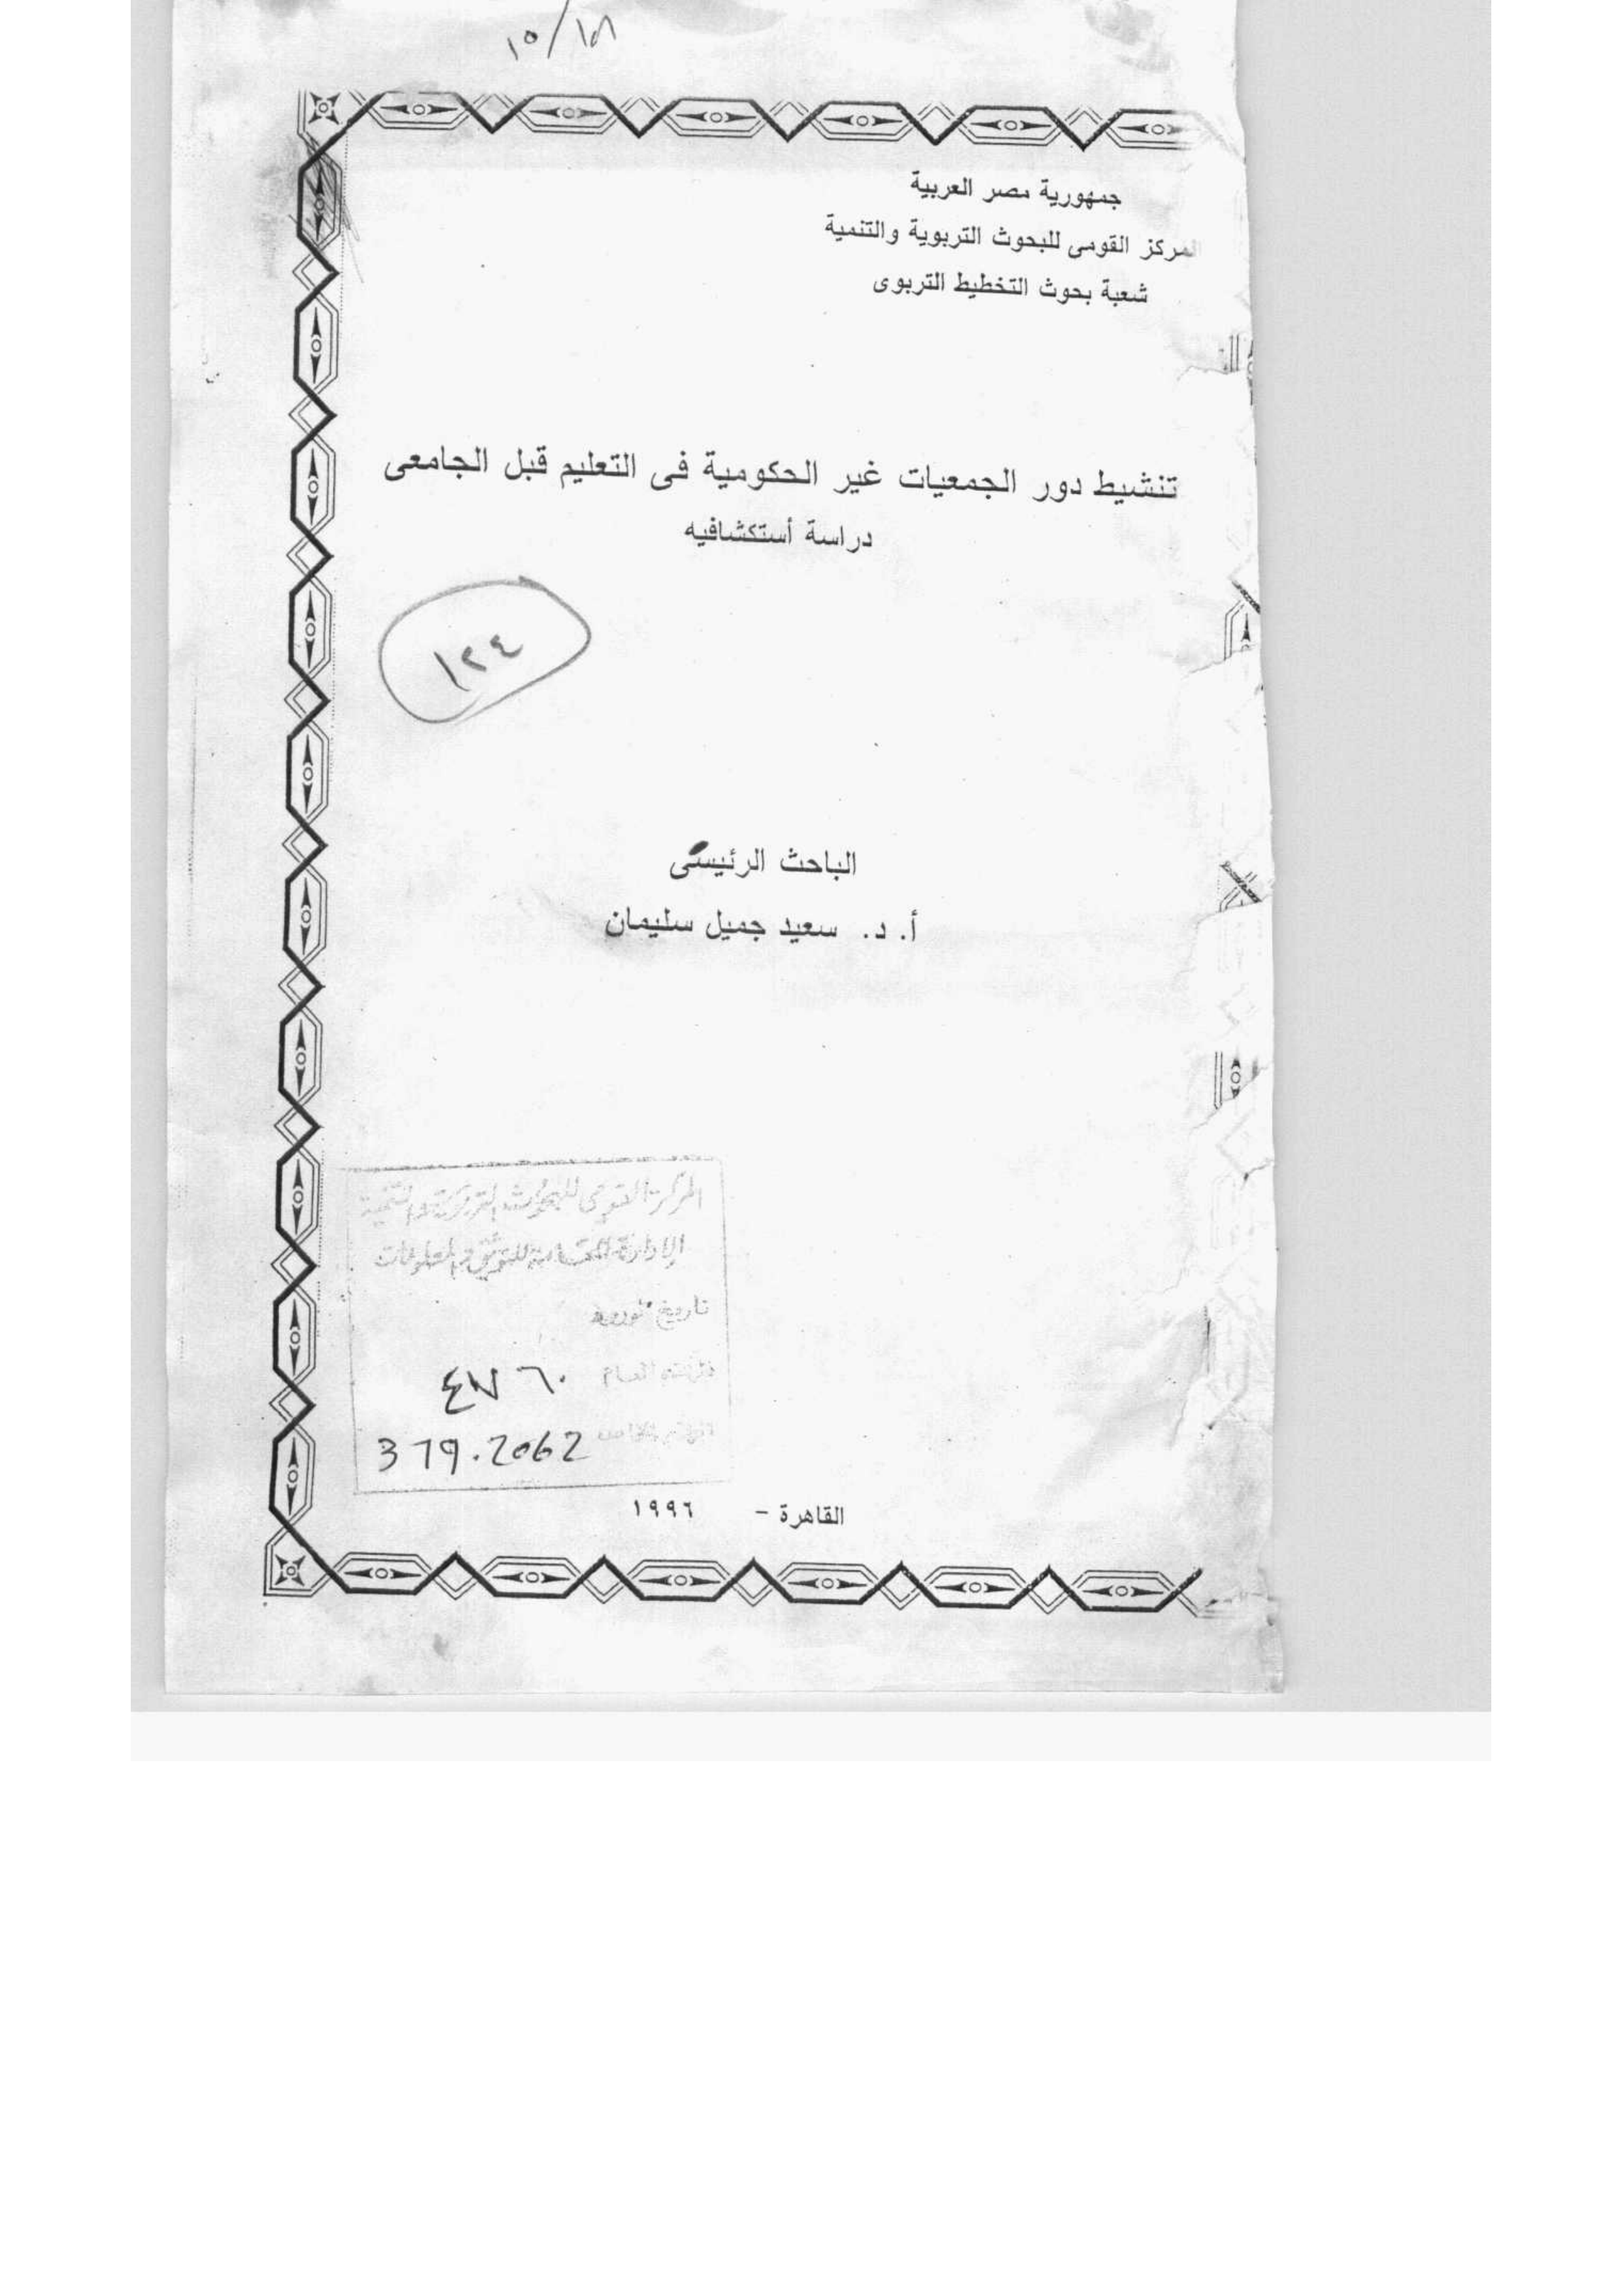 جمهورية مصر العربية
المركز القومى للبحوث التربوية والتنمية
شعبة بحوث التخطيط التربوى
تنشيط دور الجمعيات غير الحكومية فى التعليم قبل الجامعى
دراسة أستكشافيه
١٢٤
الباحث الرئيسى
أ. د. سعيد جميل سليمان
المركز القومى للبحوث التربوية والتنمية
الإدارة العامة للتوثيق والمعلومات
تاريخ
٤٧٦٠
379.2062
القاهرة - ١٩٩٦